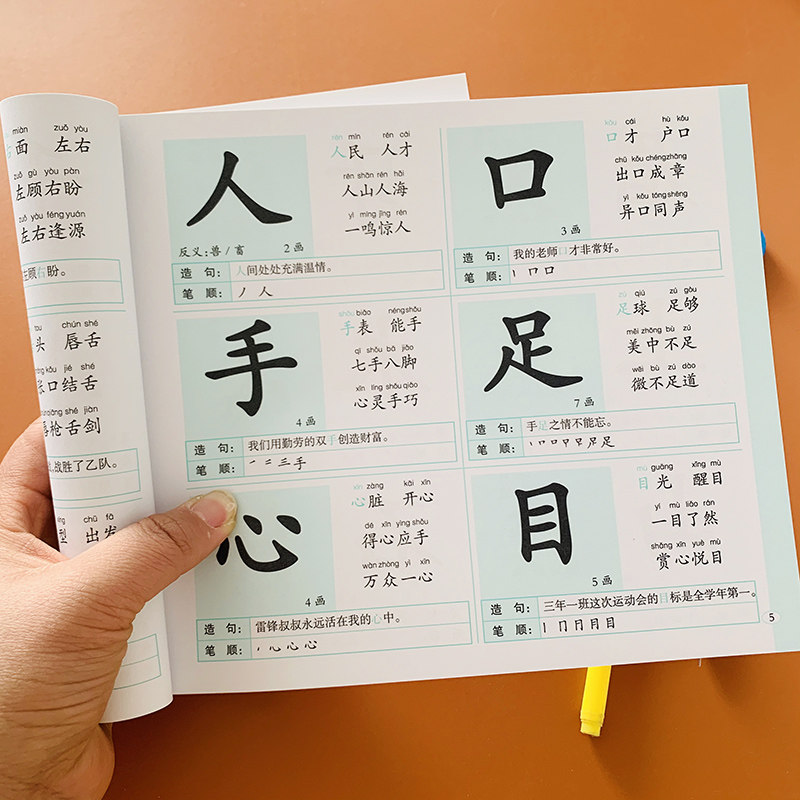 miàn zuǒ yòu
面 左右
zuǒ gù yòu pàn
左顾右盼
zuǒ yòu féng yuán
左右逢源
左顾右盼。
chún shé
头 唇舌
kǒu jié shé
张口结舌
qiāng shé jiàn
唇枪舌剑
战胜了乙队。
xíng chū fā
型 出发
人
反义:兽/畜 2画
rén mín rén cái
人民 人才
rén shān rén hǎi
人山人海
yì míng jīng rén
一鸣惊人
造 句: 人间处处充满温情。
笔 顺: 丿 人
口
3画
kǒu cái hù kǒu
口才 户口
chū kǒu chéng zhāng
出口成章
yì kǒu tóng shēng
异口同声
造 句: 我的老师口才非常好。
笔 顺: 丨 冂 口
手
4画
shǒu biǎo néng shǒu
手表 能手
qī shǒu bā jiǎo
七手八脚
xīn líng shǒu qiǎo
心灵手巧
造 句: 我们用勤劳的双手创造财富。
笔 顺: 一 二 三 手
足
7画
zú qiú zú gòu
足球 足够
měi zhōng bù zú
美中不足
wēi bù zú dào
微不足道
造 句: 手足之情不能忘。
笔 顺: 丨 口 口 足 足
心
4画
xīn zàng kāi xīn
心脏 开心
dé xīn yìng shǒu
得心应手
wàn zhòng yì xīn
万众一心
造 句: 雷锋叔叔永远活在我的心中。
笔 顺: 丶 心 心 心
目
5画
mù guāng xǐng mù
目光 醒目
yí mù liǎo rán
一目了然
shǎng xīn yuè mù
赏心悦目
造 句: 三年一班这次运动会的目标是全学年第一。
笔 顺: 丨 冂 日 月 目
5